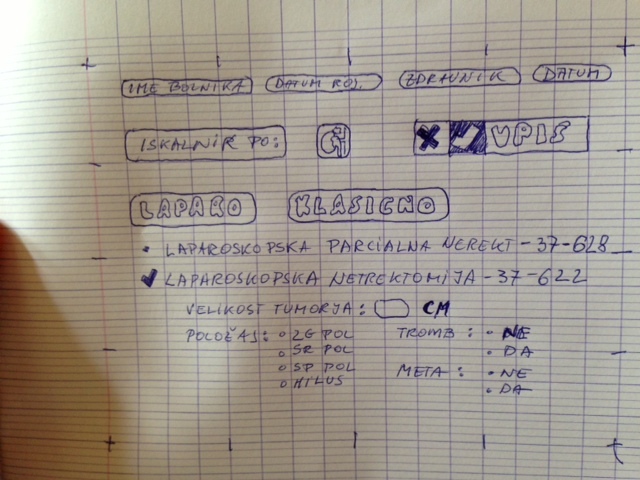 IME BOLNIKA DATUM ROJ. ZDRAVNIK DATUM
ISKALNIK PO: VPIS
LAPARO KLASIČNO
LAPAROSKOPSKA PARCIALNA NEREKT-37-628
LAPAROSKOPSKA NETREKTOMIJA-37-622
VELIKOST TUMORJA: CM
POLOŽAJ: ZG POL TROMB: NE
SR POL DA
SP POL META: NE
HILUS DA